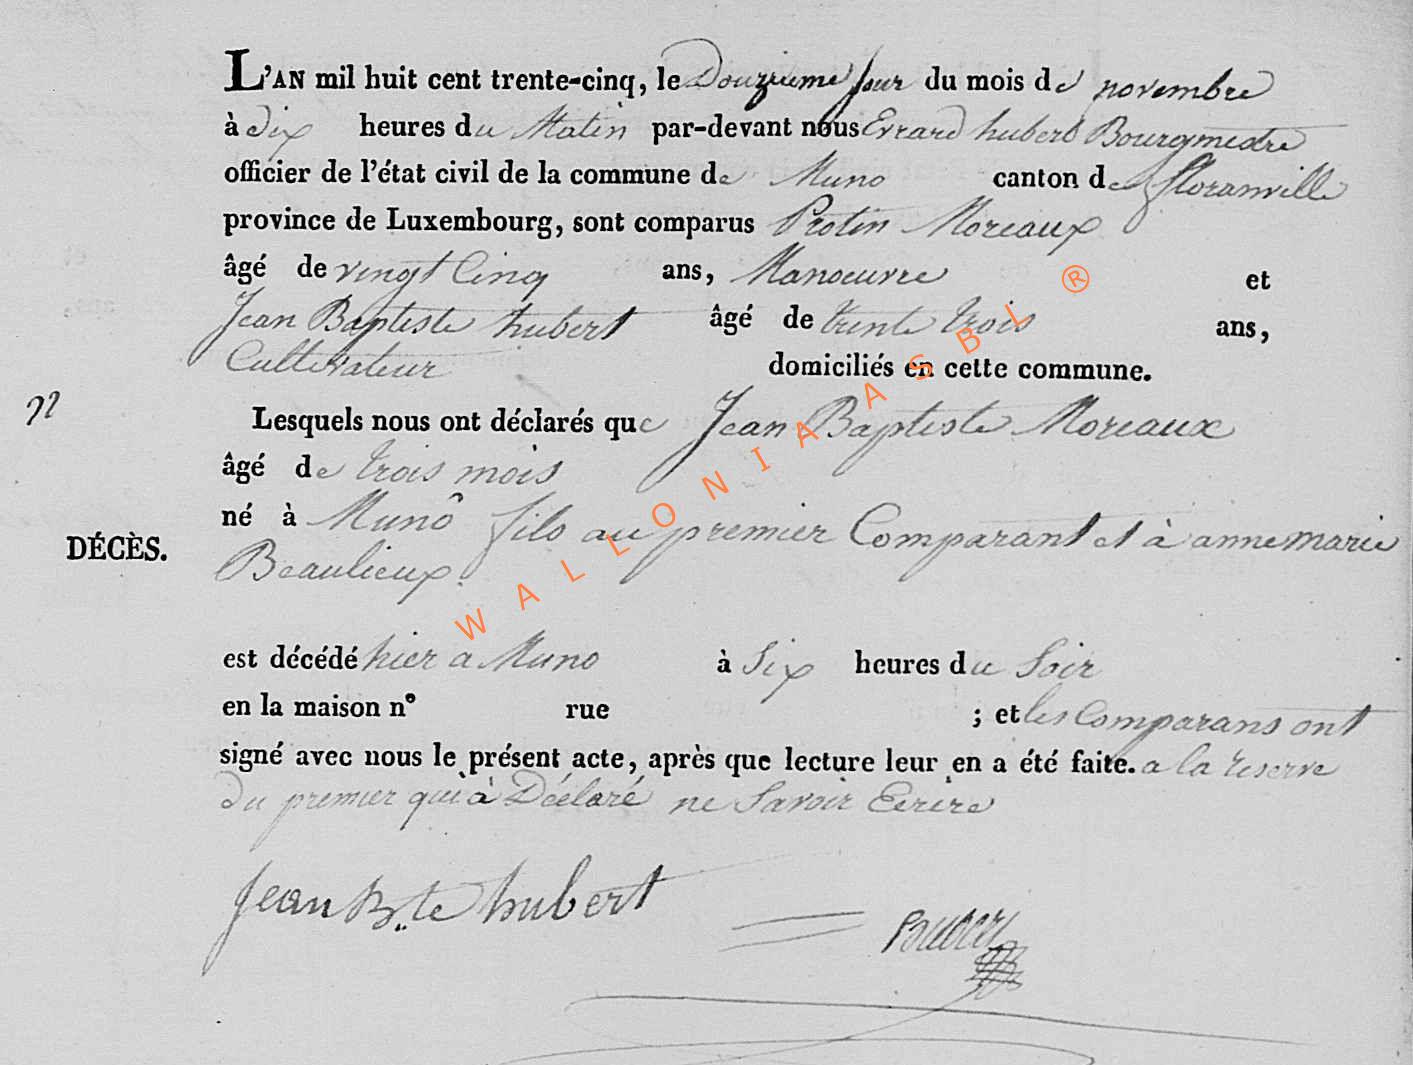 L'AN mil huit cent trente-cinq, le Douzieme jour du mois de novembre
à dix heures du Matin par-devant nous Evrard hubert Bourgmestre
officier de l'état civil de la commune de Muno canton de floranville
province de Luxembourg, sont comparus Protin Moreaux
âgé de vingt Cinq ans, Manoeuvre et
Jean Baptiste hubert âgé de trente trois ans,
Cultivateur domiciliés en cette commune.
Lesquels nous ont déclarés que Jean Baptiste Moreaux
âgé de trois mois
né à Munô fils au premier Comparant et à anne marie
DÉCÈS.
Beaulieux.
est décédé hier a Muno à Six heures du Soir
en la maison n° rue ; et les Comparans ont
signé avec nous le présent acte, après que lecture leur en a été faite. a la reserve
du premier qui à Déclaré ne Savoir Ecrire
Jean Bte hubert
WALLONIA ASBL ®